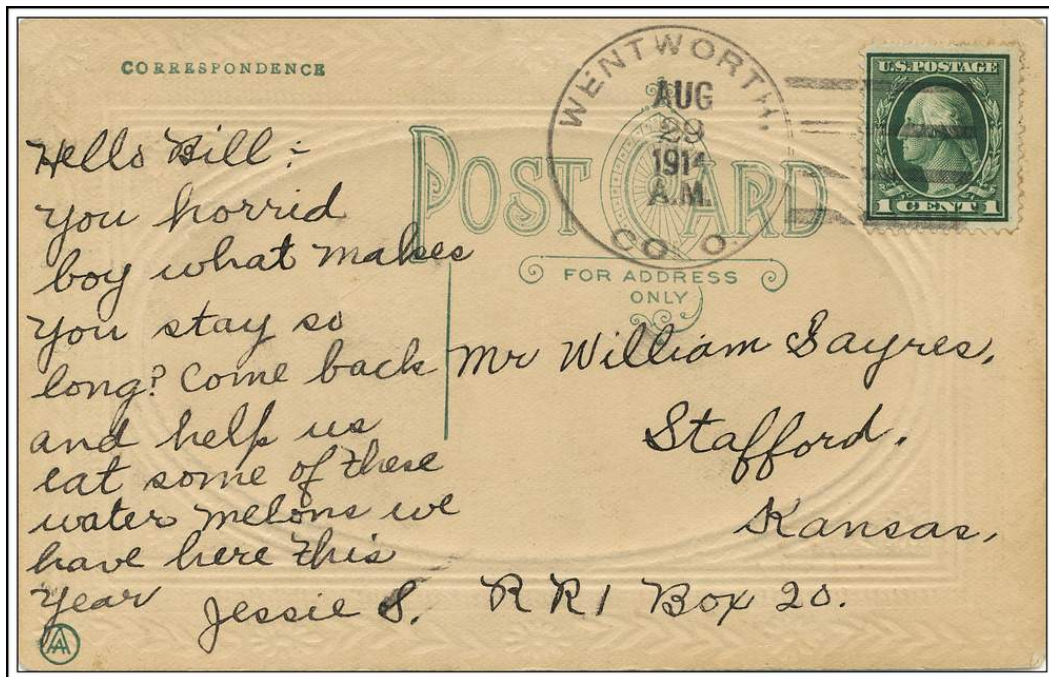 CORRESPONDENCE
WENTWORTH,
AUG
29
1914
A.M.
CO. O.
U.S. POSTAGE
1 CENT 1
POST CARD
FOR ADDRESS
ONLY
Hello Bill :-
you horrid
boy what makes
you stay so
long? Come back
and help us
eat some of these
water melons we
have here this
year
Jessie S.
Mr William Sayres,
Stafford,
Kansas,
R R 1 Box 20.
AA